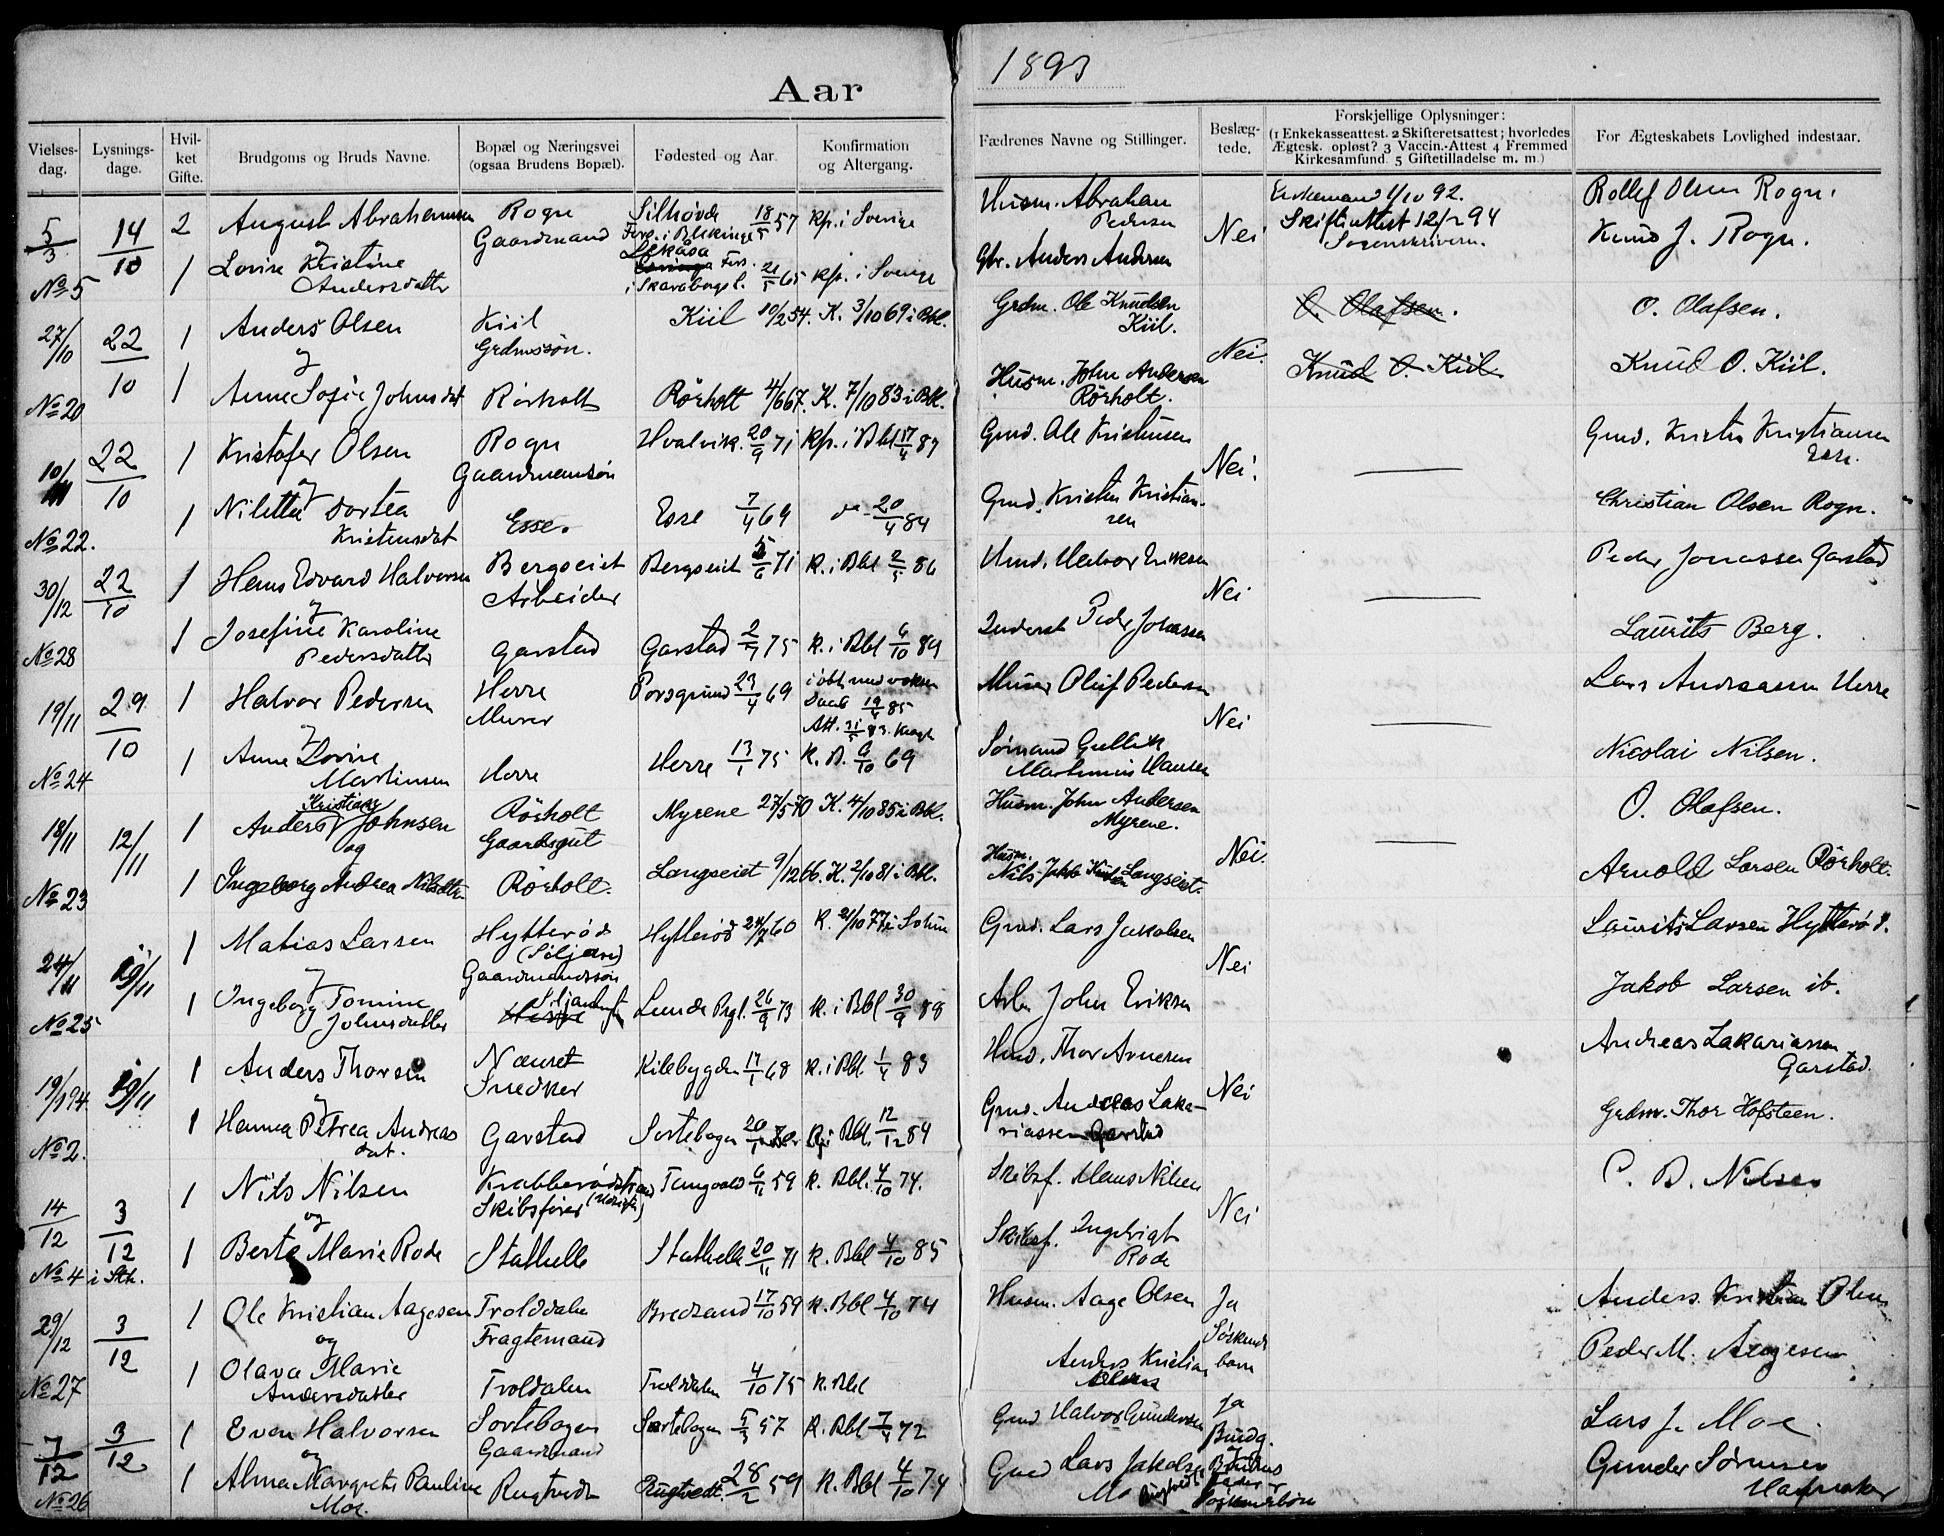 Aar 1893
Vielses-dag. Lysnings-dage. Hvil-ket Gifte. Brudgoms og Bruds Navne. Bopæl og Næringsvei (ogsaa Brudens Bopæl). Fødested og Aar. Konfirmation og Altergang. Fædrenes Navne og Stillinger. Beslæg-tede. Forskjellige Oplysninger: (1 Enkekasseattest. 2 Skifteretsattest; hvorledes Ægtesk. opløst? 3 Vaccin.-Attest 4 Fremmed Kirkesamfund. 5 Giftetilladelse m. m.) For Ægteskabets Lovlighed indestaar.
5/3 14/10 2 August Abrahamsen Rogn Gaardmand 18/5 57 Kp. i Sverige Husm. Abraham Pedersen Nei Enkemand 1/10 92. Skifteattest 12/2 94 Sorenskriveren. Rollef Olsen Rogn.
og
No 5 1 Lovise Kristine Andersdatter i Skaraborgs l. 21/5 65 Kp. i Sverige Gbr. Anders Andersen Knud J. Rogn.
27/10 22/10 1 Anders Olsen Kiil Grdmssøn. Kiil 10/2 54. K. 3/10 69 i Bbl. Grdm. Ole Knudsen Kiil. Nei. O. Olafsen. O. Olafsen.
og
No 20 1 Anne Sofie Johnsdat Rörholt Rörholt 4/6 67. K. 7/10 83 i Bbl. Husm. John Andersen Rörholt. Knud O. Kiil Knud O. Kiil.
10/11 22/10 1 Kristofer Olsen Rogn Gaardmandsøn Hvalvik 20/9 71 Kp. i Bbl 17/4 87 Grmd. Ole Kristensen Nei. Grmd. Kristen Kristiansen Esse.
og
No 22. 1 Niletta Dortea Kristensdat Esse. Esse 7/4 69 do 20/4 84 Grmd. Kristen Kristiansen Christian Olsen Rogn.
30/12 22/10 1 Hans Edvard Halvorsen Bergseiet Arbeider Bergseiet 5/6 71 K. i Bbl 2/5 86 Hmd. Halvor Eriksen Nei Peder Jonassen Garstad
og
No 28 1 Josefine Karoline Pedersdatter Garstad Garstad 2/7 75 K. i Bbl 6/10 89 Inderst Peder Jonassen Laurits Berg.
19/11 29/10 1 Halvor Pedersen Herre Murer Porsgrund 23/4 69 Murer Oluf Pedersen Nei Lars Andreassen Herre
og
No 24 1 Anne Lovise Martinsen Herre Herre 13/1 75 K. B. 6/10 69 Sømand Gullik Martinius Hansen Nicolai Nilsen.
18/11 12/11 1 Anders Kristian Johnsen Rörholt Gaardsgut Myrene 27/5 70 K. 4/10 85 i Bbl. Husm. John Andersen Myrene. Nei. O. Olafsen.
og
No 23 1 Ingeborg Andrea Nilsdtr Rörholt. Langseiet 9/12 66. K. 2/10 81 i Bbl. Husm. Nils Langseiet. Arnold Larsen Rörholt.
24/11 19/11 1 Matias Larsen Hytterød (Siljan) Gaardmandssøn Hytterød 24/7 60 K. 21/10 77 i Solum Grmd. Lars Jakobsen Nei Laurits Larsen Hytterød.
og
No 25 1 Ingeborg Tomine Johnsdatter Herre Lunde Pgl. 26/9 73 K. i Bbl 30/9 88 Arb. John Eriksen Jakob Larsen ib.
19/1 94 19/11 1 Anders Thorsen Næuret Snedker Kilebygden 17/1 68 K. i Bbl 1/4 83 Hmd. Thor Arnesen Nei Andreas Zakariassen Garstad.
og
No 2. 1 Hanna Petrea Andreas dat. Garstad Sortebogen 20/1 K. i Bbl. 12/12 84 Grmd. Andreas Zakariassen Garstad Grdm. Thor Hofsteen.
14/12 3/12 1 Nils Nilsen Krabberødstrand Skibsfører Tangvald 6/11 59 K. Bbl. 4/10 74. Skibsf. Hans Nilsen Nei C. B. Nilsen
og
No 4 i Sth. 1 Berte Marie Rode Stathelle Stathelle 20/11 71 K. Bbl 4/10 85 Skibsf. Ingebrigt Rode
29/12 3/12 1 Ole Kristian Aagesen Trolddalen Fragtemand Bredsand 17/10 59 K. Bbl 4/10 74 Husm. Aage Olsen Ja Søskendebørn Anders Kristian Olsen
og
No 27 1 Olava Marie Andersdatter Troldalen Trolddalen 4/10 75 K. Bbl Anders Kristian Olsen Peder M. Aagesen
7/12 3/12 1 Even Halvorsen Sortebogen Gaardmand Sortebogen 5/3 57 K. Bbl 7/4 72 Gmd Halvor Gundersen Ja Lars J. Moe.
og
No 26 1 Alma Margrete Pauline Moe. Rugtvedt Rugtvedt. 28/2 59 K. Bbl 4/10 74 Gmd Lars Jakobsen Rugtvedt Brudg. og Brudens Fædre er Søskendebørn Gunder Sørensen